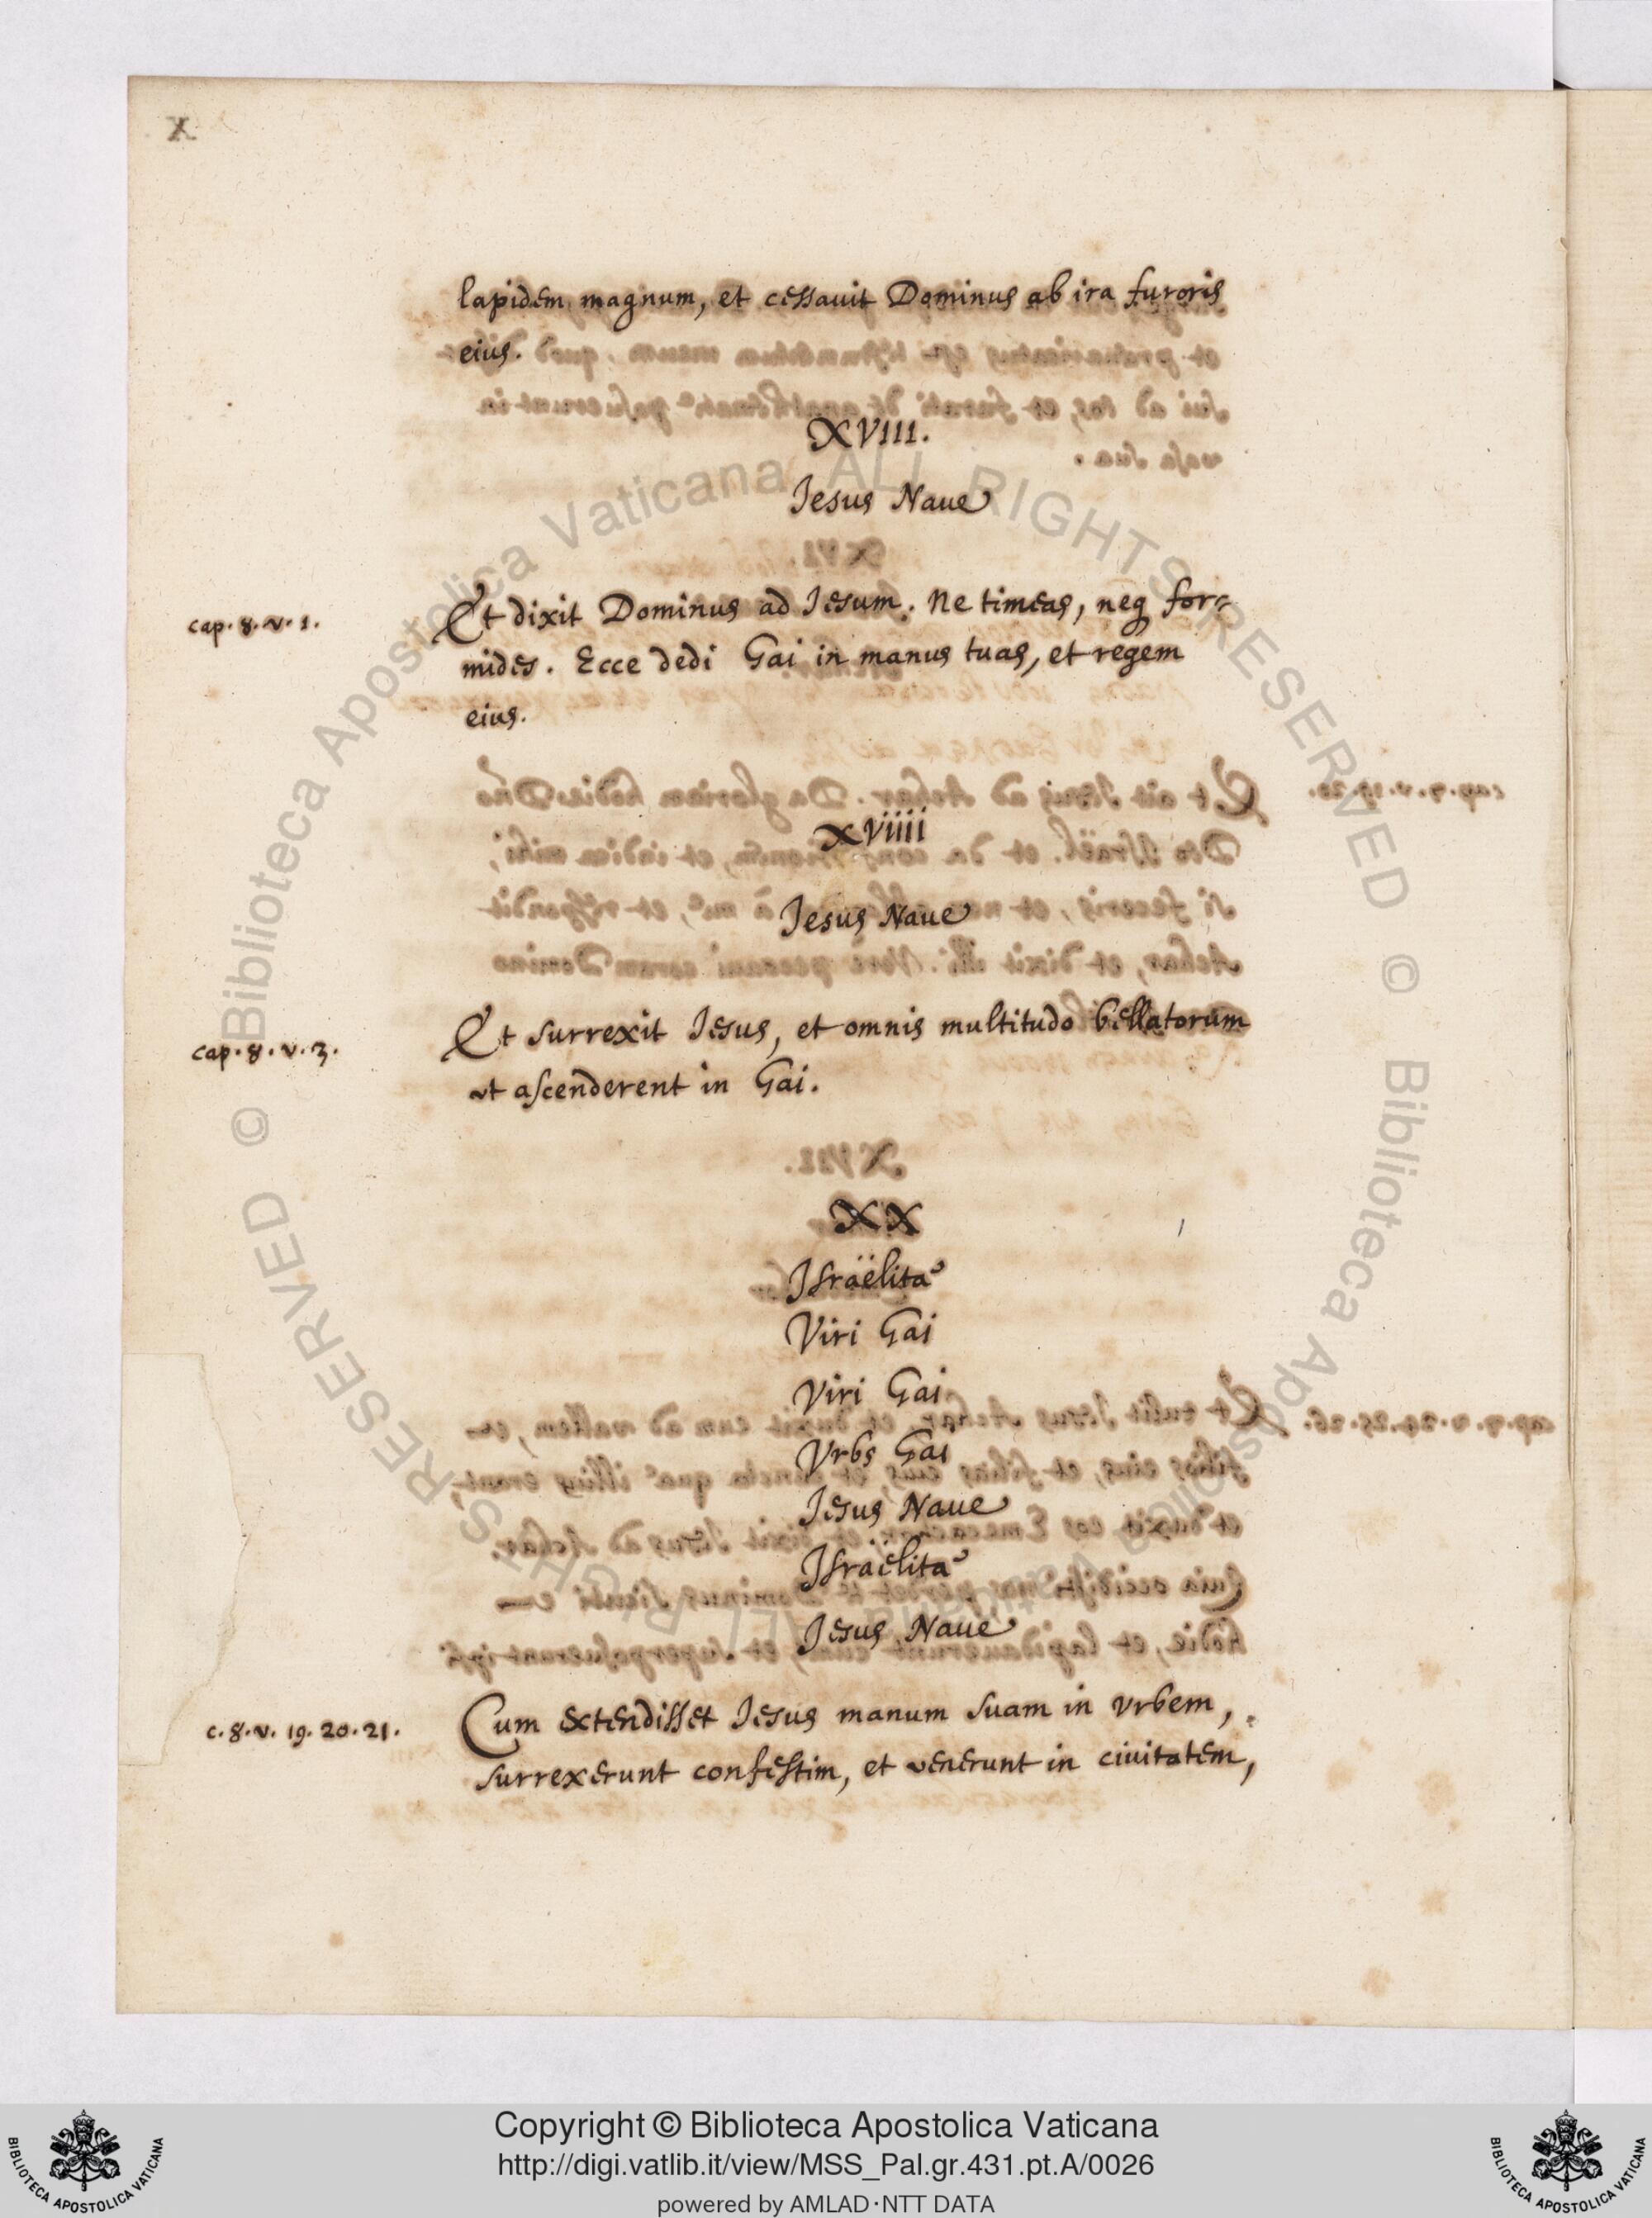 X
lapidem magnum, et cessauit Dominus ab ira furoris
eius.
XVIII.
Jesus Naue
cap. 8. v. 1.
Et dixit Dominus ad Jesum. Ne timeas, neq for-
mides. Ecce dedi Gai in manus tuas, et regem
eius.
XVIIII
Jesus Naue
cap. 8. v. 3.
Et surrexit Jesus, et omnis multitudo bellatorum
vt ascenderent in Gai.
XX
Israëlitæ
Viri Gai
Viri Gai
Vrbs Gai
Jesus Naue
Israëlitæ
Jesus Naue
c. 8. v. 19. 20. 21.
Cum extendisset Jesus manum suam in vrbem,
surrexerunt confestim, et venerunt in ciuitatem,
© Biblioteca Apostolica Vaticana ALL RIGHTS RESERVED © Biblioteca Apostolica Vaticana ALL RIGHTS RESERVED
Copyright © Biblioteca Apostolica Vaticana
http://digi.vatlib.it/view/MSS_Pal.gr.431.pt.A/0026
powered by AMLAD·NTT DATA
BIBLIOTECA APOSTOLICA VATICANA
BIBLIOTECA APOSTOLICA VATICANA